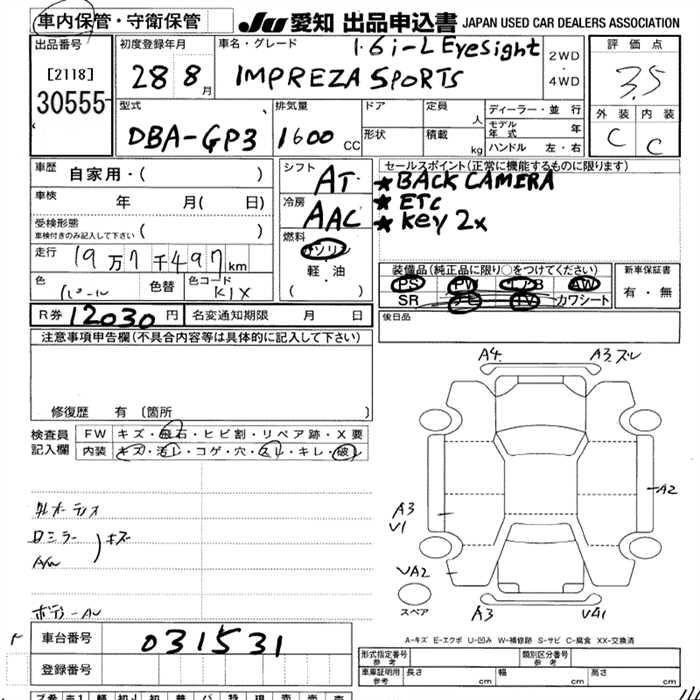 車内保管・守衛保管
JU 愛知 出品申込書 JAPAN USED CAR DEALERS ASSOCIATION
出品番号
[2118]
30555
初度登録年月
28 8月
車名・グレード
1.6i-L EyeSight
IMPREZA SPORTS
2WD
・
4WD
評価点
3.5
外装 内装
C C
型式
DBA-GP3
排気量
1600 CC
ドア
形状
定員 人
積載 kg
ディーラー・並行
モデル年式 年
ハンドル 左・右
車歴
自家用・( )
車検 年 月( 日)
受検形態
車検付きのみ記入して下さい ( )
走行 19万7千497km
色 パール 色替 色コード K1X
シフト AT
冷房 AAC
燃料
ガソリン
・
軽・油
( )
セールスポイント(正常に機能するものに限ります)
★BACK CAMERA
★ETC
★Key 2x
装備品(純正品に限り○をつけてください)
PS PW エアB AW
SR ナビ TV カワシート
新車保証書
有・無
後日品
R券 12030円 名変通知期限 月 日
注意事項申告欄(不具合内容等は具体的に記入して下さい)
修復歴 有 〔箇所 〕
検査員記入欄
FW キズ・飛石・ヒビ割・リペア跡・X要
内装 キズ・汚レ・コゲ・穴・スレ・キレ・破レ
外オーディオ
ロミラー
A/W
キズ
A4 A3.ズレ
A2
A3
V1
VA2
A3 VA1
スペア
A-キズ E-エクボ U-凹み W-補修跡 S-サビ C-腐食 XX-交換済
車台番号 031531
登録番号
形式指定番号
参考
類別区分番号
参考
車庫証明用
参考
長さ cm 幅 cm 高さ cm